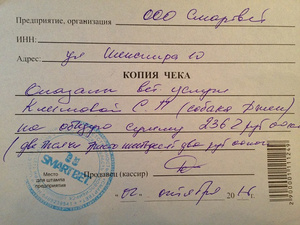 Предприятие, организация ООО Смартвет
ИНН:
Адрес: ул 10
КОПИЯ ЧЕКА
Оказаны вет услуги
Климовой С. (собака
на общую сумму 2362 руб 00 коп
(две тысячи триста шестьдесят два руб 00 коп)
Место
для штампа
предприятия
SMARTВЕТ
Продавец (кассир)
02 октября 201